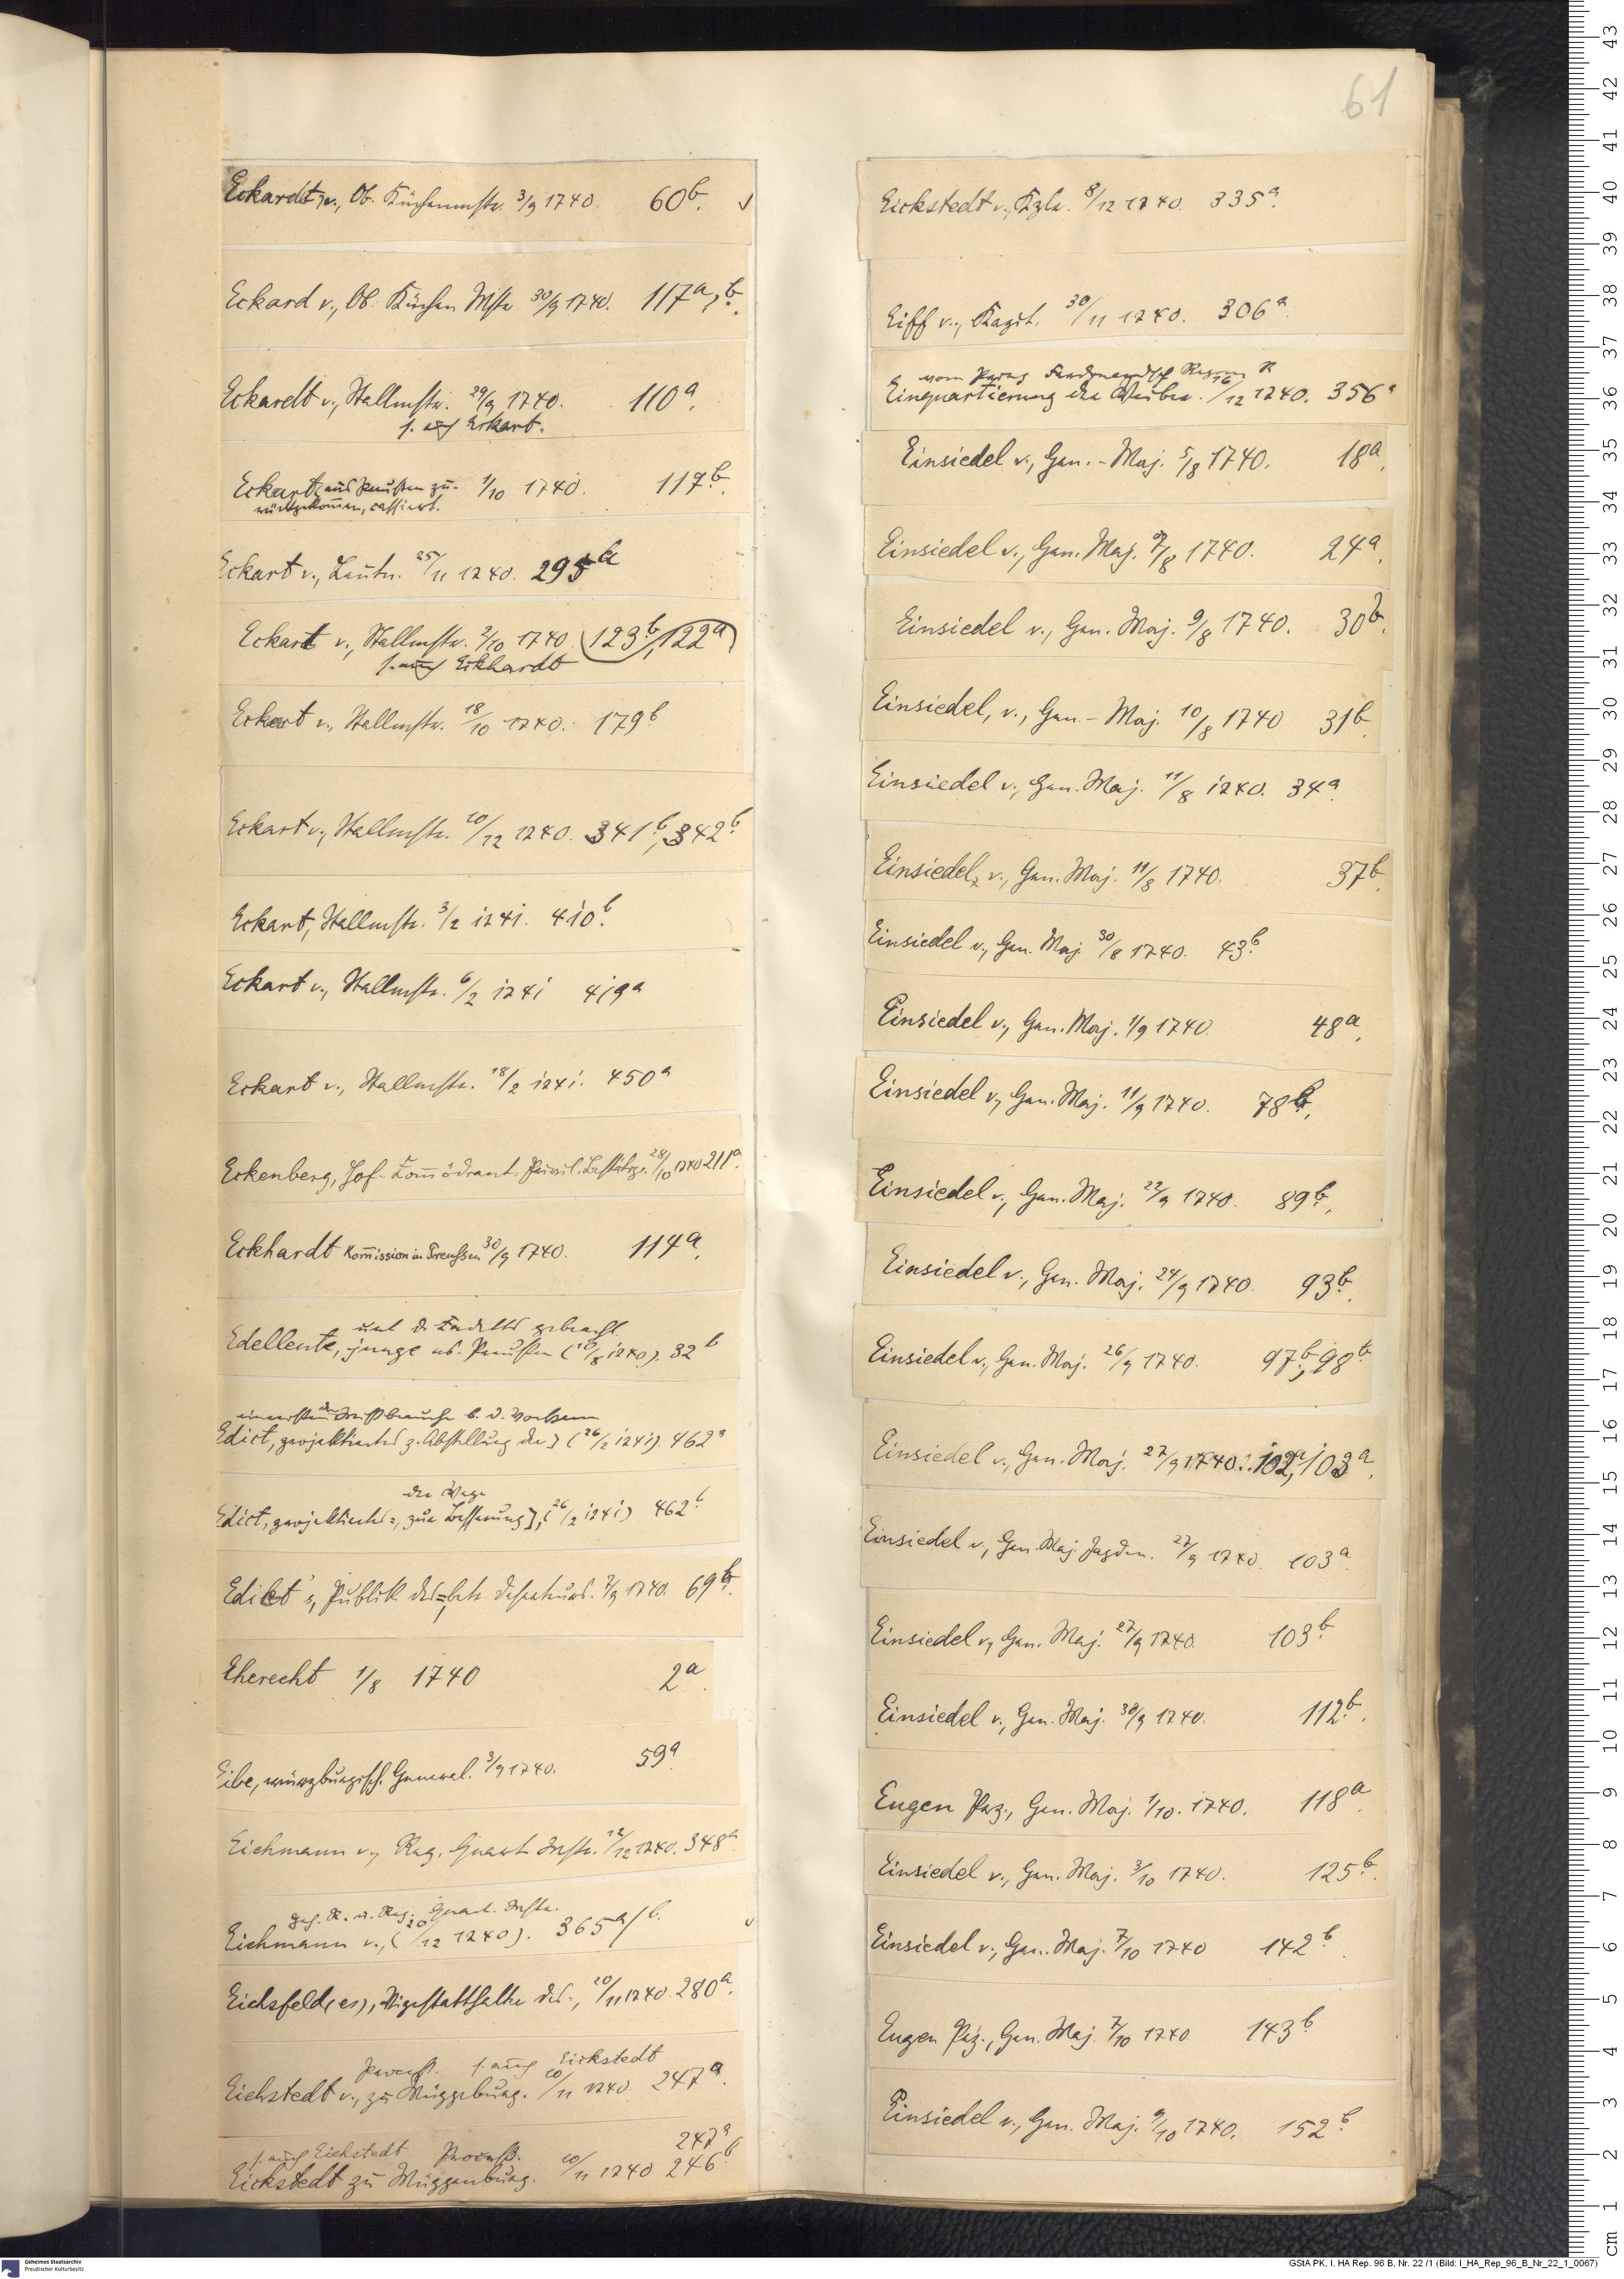 61
Eckardt v., Ob. Küchenmstr. 3/9 1740. 60b.
Eckard v., Ob. Küchen Mstr 30/9 1740. 117a, b.
Eckardt v., Stallmstr. 29/9 1740. 110a.
s. auch Eckart.
Eckart, aus Preußen zu- 1/10 1740. 117b.
rückgekommen, cassiert.
Eckart v., Leutn. 25/11 1740. 295a
Eckart v., Stallmstr. 2/10 1740 (123b, 122a)
s. auch Eckhardt
Eckart v., Stallmstr. 18/10 1740. 179b
Eckart v., Stallmstr. 10/12 1740. 341b, 342b.
Eckart, Stallmstr. 3/2 1741. 410b.
Eckart v., Stallmstr. 6/2 1741 419a
Eckart v., Stallmstr. 18/2 1741. 450a
Eckenberg, Hof-Komödiant. Privil. 28/10 1740 211a.
Eckhardt Kommission in Preußen 30/9 1740. 114a.
unt. d. Cadetts gebracht
Edelleute, junge as. Preußen (10/8 1740). 32b
Mißbräuche b. d.
Edict, projektiertes z. Abstellung der (26/2 1741) 462a
der Wege
Edict, projektiertes, zur Besserung, (26/2 1741) 462b
Edikt's, Publik. des betr. 7/9 1740. 69b.
Eherecht 1/8 1740 2a.
Eibe, würzburgisch. General. 3/9 1740. 59a.
Eichmann v., Reg. Quart. Mstr. 12/12 1740. 348a
Geh. R. u. Reg. Quart. Mstr.
Eichmann v., (20/12 1740). 365a/b.
Eichsfeld(es), Vizestatthalter des, 20/11 1740 280a.
Process. s. auch Eickstedt
Eichstedt v., zu Müggeburg. 10/11 1740. 247a.
s. auch Eichstedt Process. 247a
Eickstedt zu Müggenburg. 10/11 1740 246b
Eickstedt v., Kzlr. 8/12 1740. 335a.
Eiff v., Kapit. 30/11 1740. 306a.
vom Prinz Regim.
Einquartierung der Weiber. 16/12 1740. 356a
Einsiedel v., Gen.-Maj. 5/8 1740. 18a.
Einsiedel v., Gen. Maj. 7/8 1740. 24a.
Einsiedel v., Gen. Maj. 9/8 1740. 30b.
Einsiedel, v., Gen-Maj. 10/8 1740 31b.
Einsiedel v., Gen. Maj. 11/8 1740. 34a.
Einsiedel, v., Gen. Maj. 11/8 1740. 37b.
Einsiedel v., Gen. Maj. 30/8 1740. 43b.
Einsiedel v., Gen. Maj. 1/9 1740. 48a.
Einsiedel v., Gen. Maj. 11/9 1740. 78b.
Einsiedel v., Gen. Maj. 22/9 1740. 89b.
Einsiedel v., Gen. Maj. 24/9 1740. 93b.
Einsiedel v., Gen. Maj. 26/9 1740. 97b, 98b.
Einsiedel v., Gen. Maj. 27/9 1740. 102a, 103a.
Einsiedel v., Gen. Maj. Jagden. 27/9 1740. 103a.
Einsiedel v., Gen. Maj. 27/9 1740. 103b.
Einsiedel v., Gen. Maj. 30/9 1740. 112b.
Eugen Prz., Gen. Maj. 1/10. 1740. 118a.
Einsiedel v., Gen. Maj. 3/10 1740. 125b.
Einsiedel v., Gen. Maj. 7/10 1740 142b.
Eugen Prz., Gen. Maj. 7/10 1740 143b
Einsiedel v., Gen. Maj. 9/10 1740. 152b.
Geheimes Staatsarchiv
Preußischer Kulturbesitz
GStA PK, I. HA Rep. 96 B, Nr. 22 /1 (Bild: I_HA_Rep_96_B_Nr_22_1_0067)